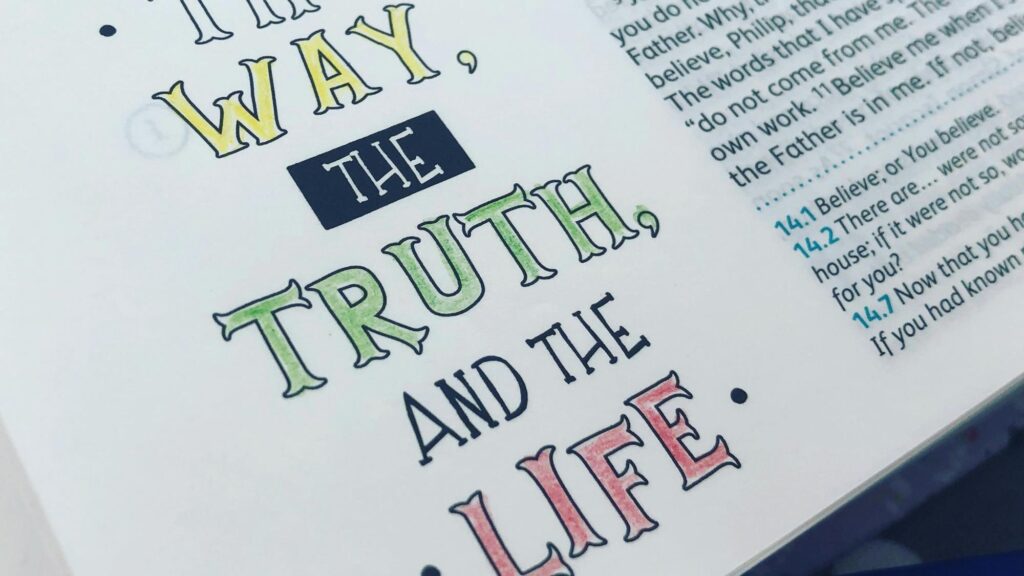 WAY,
THE
TRUTH,
AND THE
LIFE
you do
Father. Why,
believe, Philip,
The words that I have
"do not come from me. The
own work. 11 Believe me when I
the Father is in me. If not,
14.1 Believe; or You believe.
14.2 There are... were not so
house; if it were not so,
for you?
14.7 Now that you
If you had known